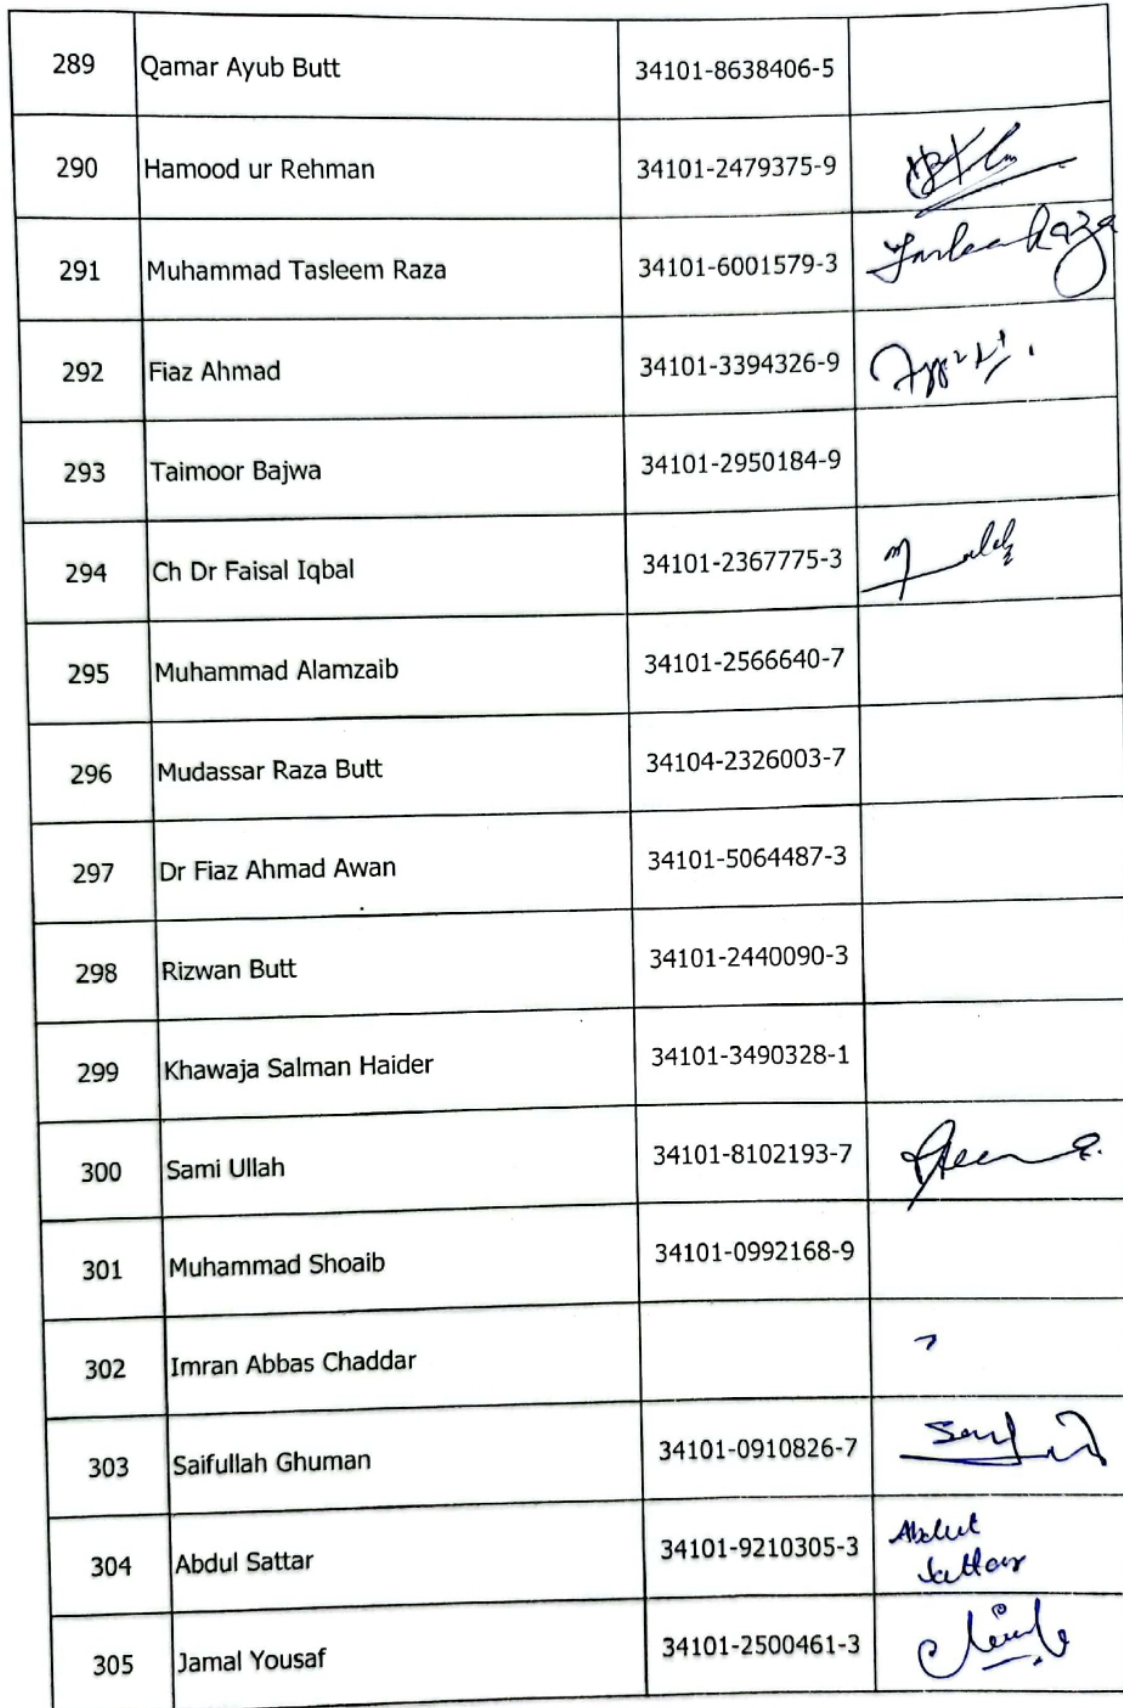 289 Qamar Ayub Butt 34101-8638406-5
290 Hamood ur Rehman 34101-2479375-9
291 Muhammad Tasleem Raza 34101-6001579-3 Raza
292 Fiaz Ahmad 34101-3394326-9
293 Taimoor Bajwa 34101-2950184-9
294 Ch Dr Faisal Iqbal 34101-2367775-3
295 Muhammad Alamzaib 34101-2566640-7
296 Mudassar Raza Butt 34104-2326003-7
297 Dr Fiaz Ahmad Awan 34101-5064487-3
298 Rizwan Butt 34101-2440090-3
299 Khawaja Salman Haider 34101-3490328-1
300 Sami Ullah 34101-8102193-7
301 Muhammad Shoaib 34101-0992168-9
302 Imran Abbas Chaddar
303 Saifullah Ghuman 34101-0910826-7
304 Abdul Sattar 34101-9210305-3 Abdul
Sattar
305 Jamal Yousaf 34101-2500461-3